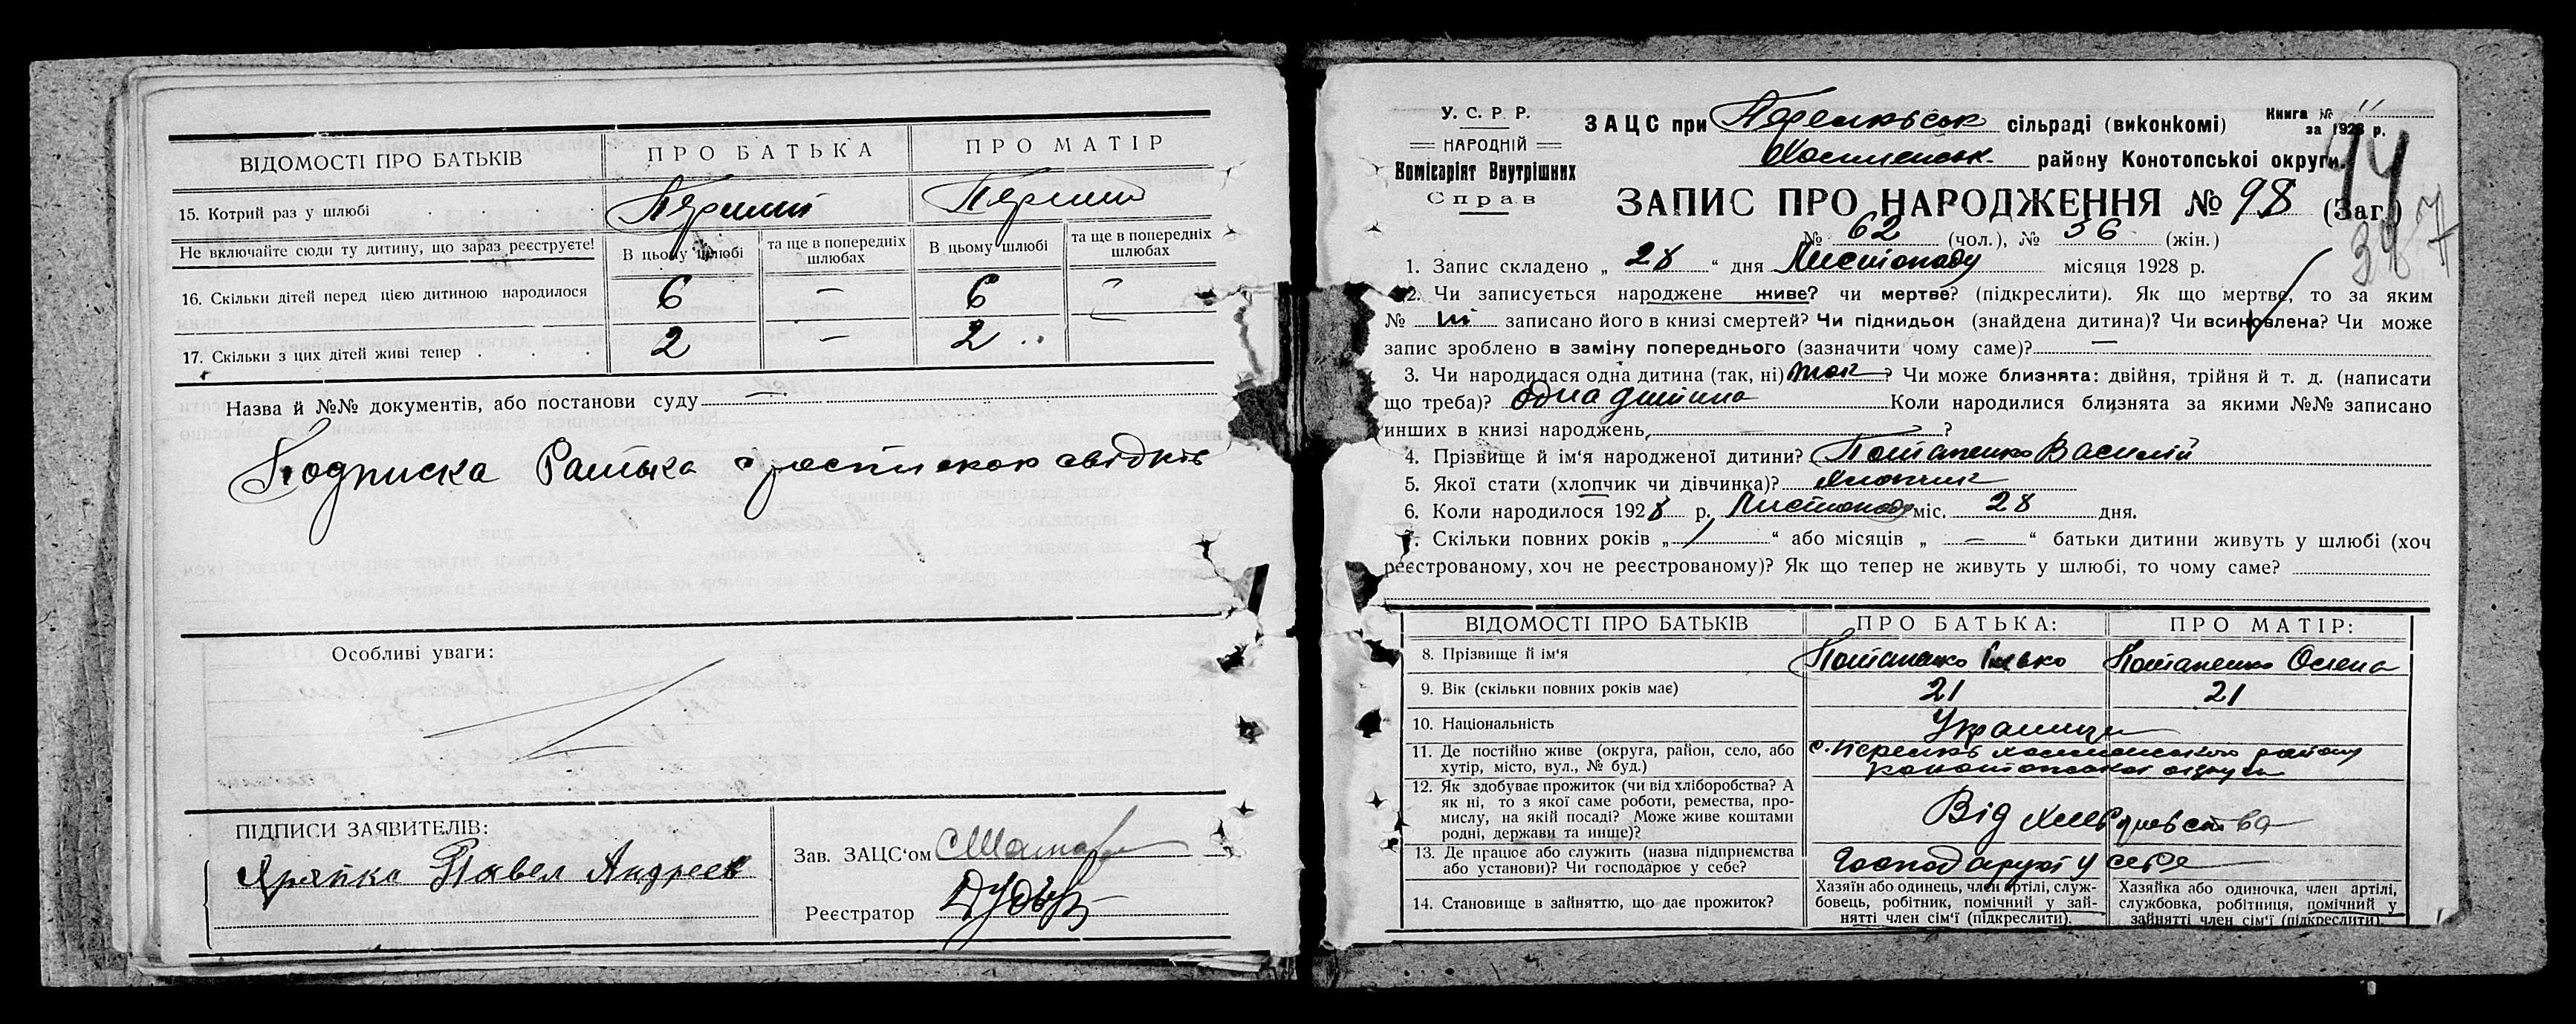 ВІДОМОСТІ ПРО БАТЬКІВ
ПРО БАТЬКА
ПРО МАТІР
15. Котрий раз у шлюбі
Перший
Перший
Не включайте сюди ту дитину, що зараз реєструєте!
В цьому шлюбі
та ще в попередніх шлюбах
В цьому шлюбі
та ще в попередніх шлюбах
16. Скільки дітей перед цією дитиною народилося
6 — 6 —
17. Скільки з цих дітей живі тепер
2 — 2
Назва й №№ документів, або постанови суду —
Подписка
Особливі уваги:
ПІДПИСИ ЗАЯВИТЕЛІВ:
Павел Андреев
Зав. ЗАЦС'ом
Реєстратор
У. С. Р. Р.
НАРОДНІЙ
Комісаріят Внутрішних
Справ
ЗАЦС при сільраді (виконкомі)
району Конотопської округи
Книга № 11
за 1928 р.
ЗАПИС ПРО НАРОДЖЕННЯ № 98 (Заг.)
№ 62 (чол.), № 36 (жін.)
1. Запис складено „ 28 “ дня Листопаду місяця 1928 р.
2. Чи записується народжене живе? чи мертве? (підкреслити). Як що мертве, то за яким
№ записано його в книзі смертей? Чи підкидьок (знайдена дитина)? Чи всиновлена? Чи може
запис зроблено в заміну попереднього (зазначити чому саме)? —
3. Чи народилася одна дитина (так, ні) так ? Чи може близнята: двійня, трійня й т. д. (написати
що треба)? Одна дитина Коли народилися близнята за якими №№ записано
инших в книзі народжень, — ?
4. Прізвище й ім'я народженої дитини? Потапенко Василій
5. Якої стати (хлопчик чи дівчинка)? Хлопчик
6. Коли народилося 1928 р. Листопаду міс. 28 дня.
7. Скільки повних років „ “ або місяців „ — “ батьки дитини живуть у шлюбі (хоч
реєстрованому, хоч не реєстрованому)? Як що тепер не живуть у шлюбі, то чому саме?
ВІДОМОСТІ ПРО БАТЬКІВ
ПРО БАТЬКА:
ПРО МАТІР:
8. Прізвище й ім'я
Потапенко Ілько
Потапенко Олена
9. Вік (скільки повних років має)
21
21
10. Національність
Українці
11. Де постійно живе (округа, район, село, або
хутір, місто, вул., № буд.)
району
конотопської округи
12. Як здобуває прожиток (чи від хліборобства? А
як ні, то з якої саме роботи, ремества, про-
мислу, на якій посаді? Може живе коштами
родні, держави та инше)?
Від хліборобства
13. Де працює або служить (назва підприємства
або установи)? Чи господарює у себе?
Господарюют у себе
14. Становище в зайняттю, що дає прожиток?
Хазяїн або одинець, член артілі, служ-
бовець, робітник, помічний у зай-
нятті член сім'ї (підкреслити).
Хазяйка або одиночка, член артілі,
службовка, робітниця, помічний у
зайнятті член сім'ї (підкреслити).